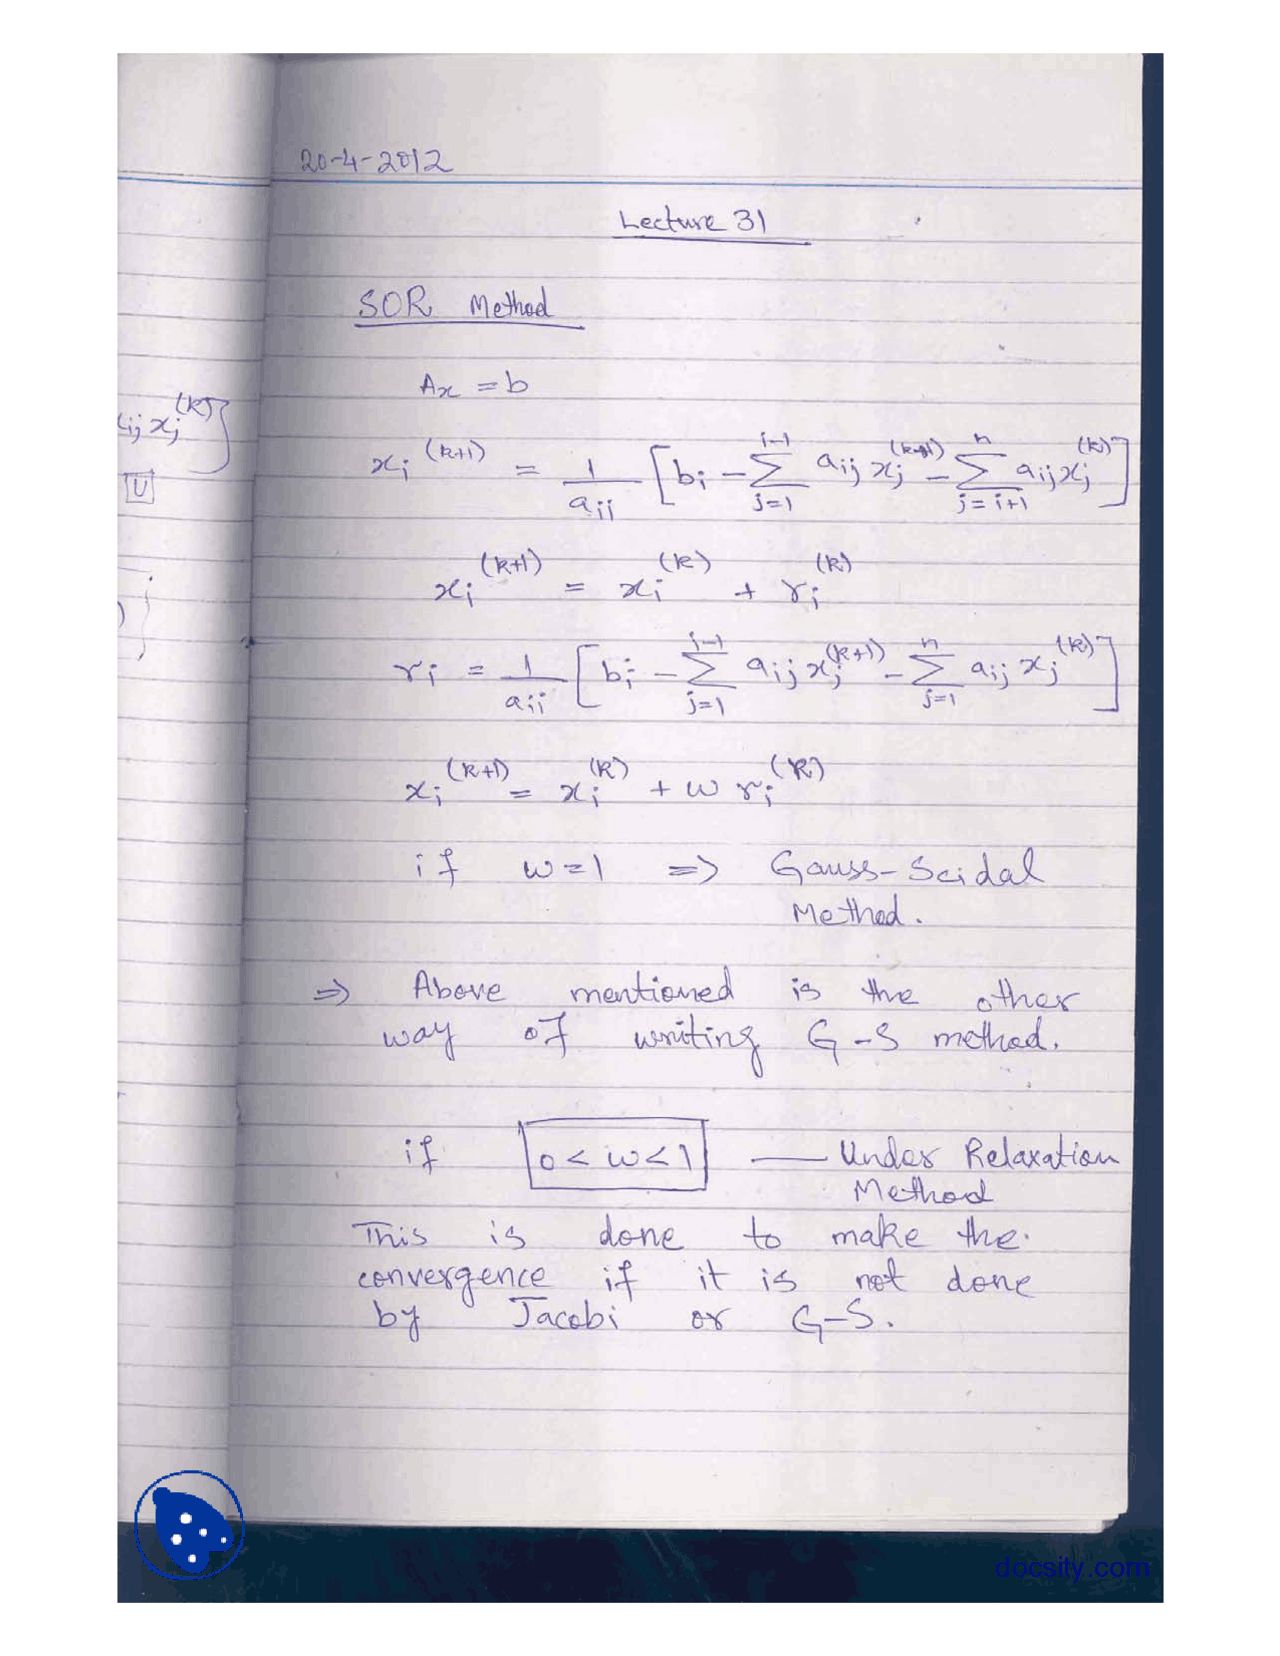 20-4-2012
Lecture 31
SOR Method
Ax = b
x_i^(k+1) = 1/a_ii [b_i - Σ_{j=1}^{i-1} a_ij x_j^(k+1) - Σ_{j=i+1}^{n} a_ij x_j^(k)]
x_i^(k+1) = x_i^(k) + r_i^(k)
r_i = 1/a_ii [b_i - Σ_{j=1}^{i-1} a_ij x_j^(k+1) - Σ_{j=1}^{n} a_ij x_j^(k)]
x_i^(k+1) = x_i^(k) + w r_i^(k)
if w=1 => Gauss-Seidal
Method.
=> Above mentioned is the other
way of writing G-S method.
if 0 < w < 1 — Under Relaxation
Method
This is done to make the
convergence if it is not done
by Jacobi or G-S.
ij x_j^(k)]
U
docsity.com